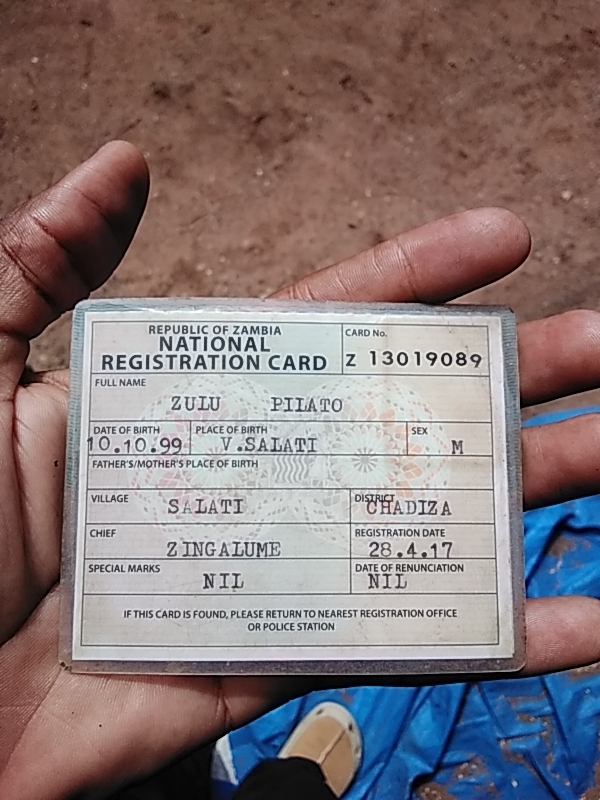 REPUBLIC OF ZAMBIA
NATIONAL
REGISTRATION CARD
CARD No.
Z 13019089
FULL NAME
ZULU PILATO
DATE OF BIRTH PLACE OF BIRTH SEX
10.10.99 V.SALATI M
FATHER'S/MOTHER'S PLACE OF BIRTH
VILLAGE DISTRICT
SALATI CHADIZA
CHIEF REGISTRATION DATE
ZINGALUME 28.4.17
SPECIAL MARKS DATE OF RENUNCIATION
NIL NIL
IF THIS CARD IS FOUND, PLEASE RETURN TO NEAREST REGISTRATION OFFICE
OR POLICE STATION